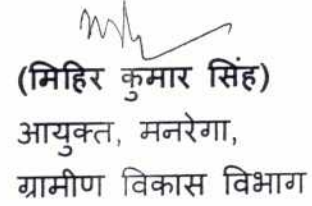 (मिहिर कुमार सिंह)
आयुक्त, मनरेगा,
ग्रामीण विकास विभाग